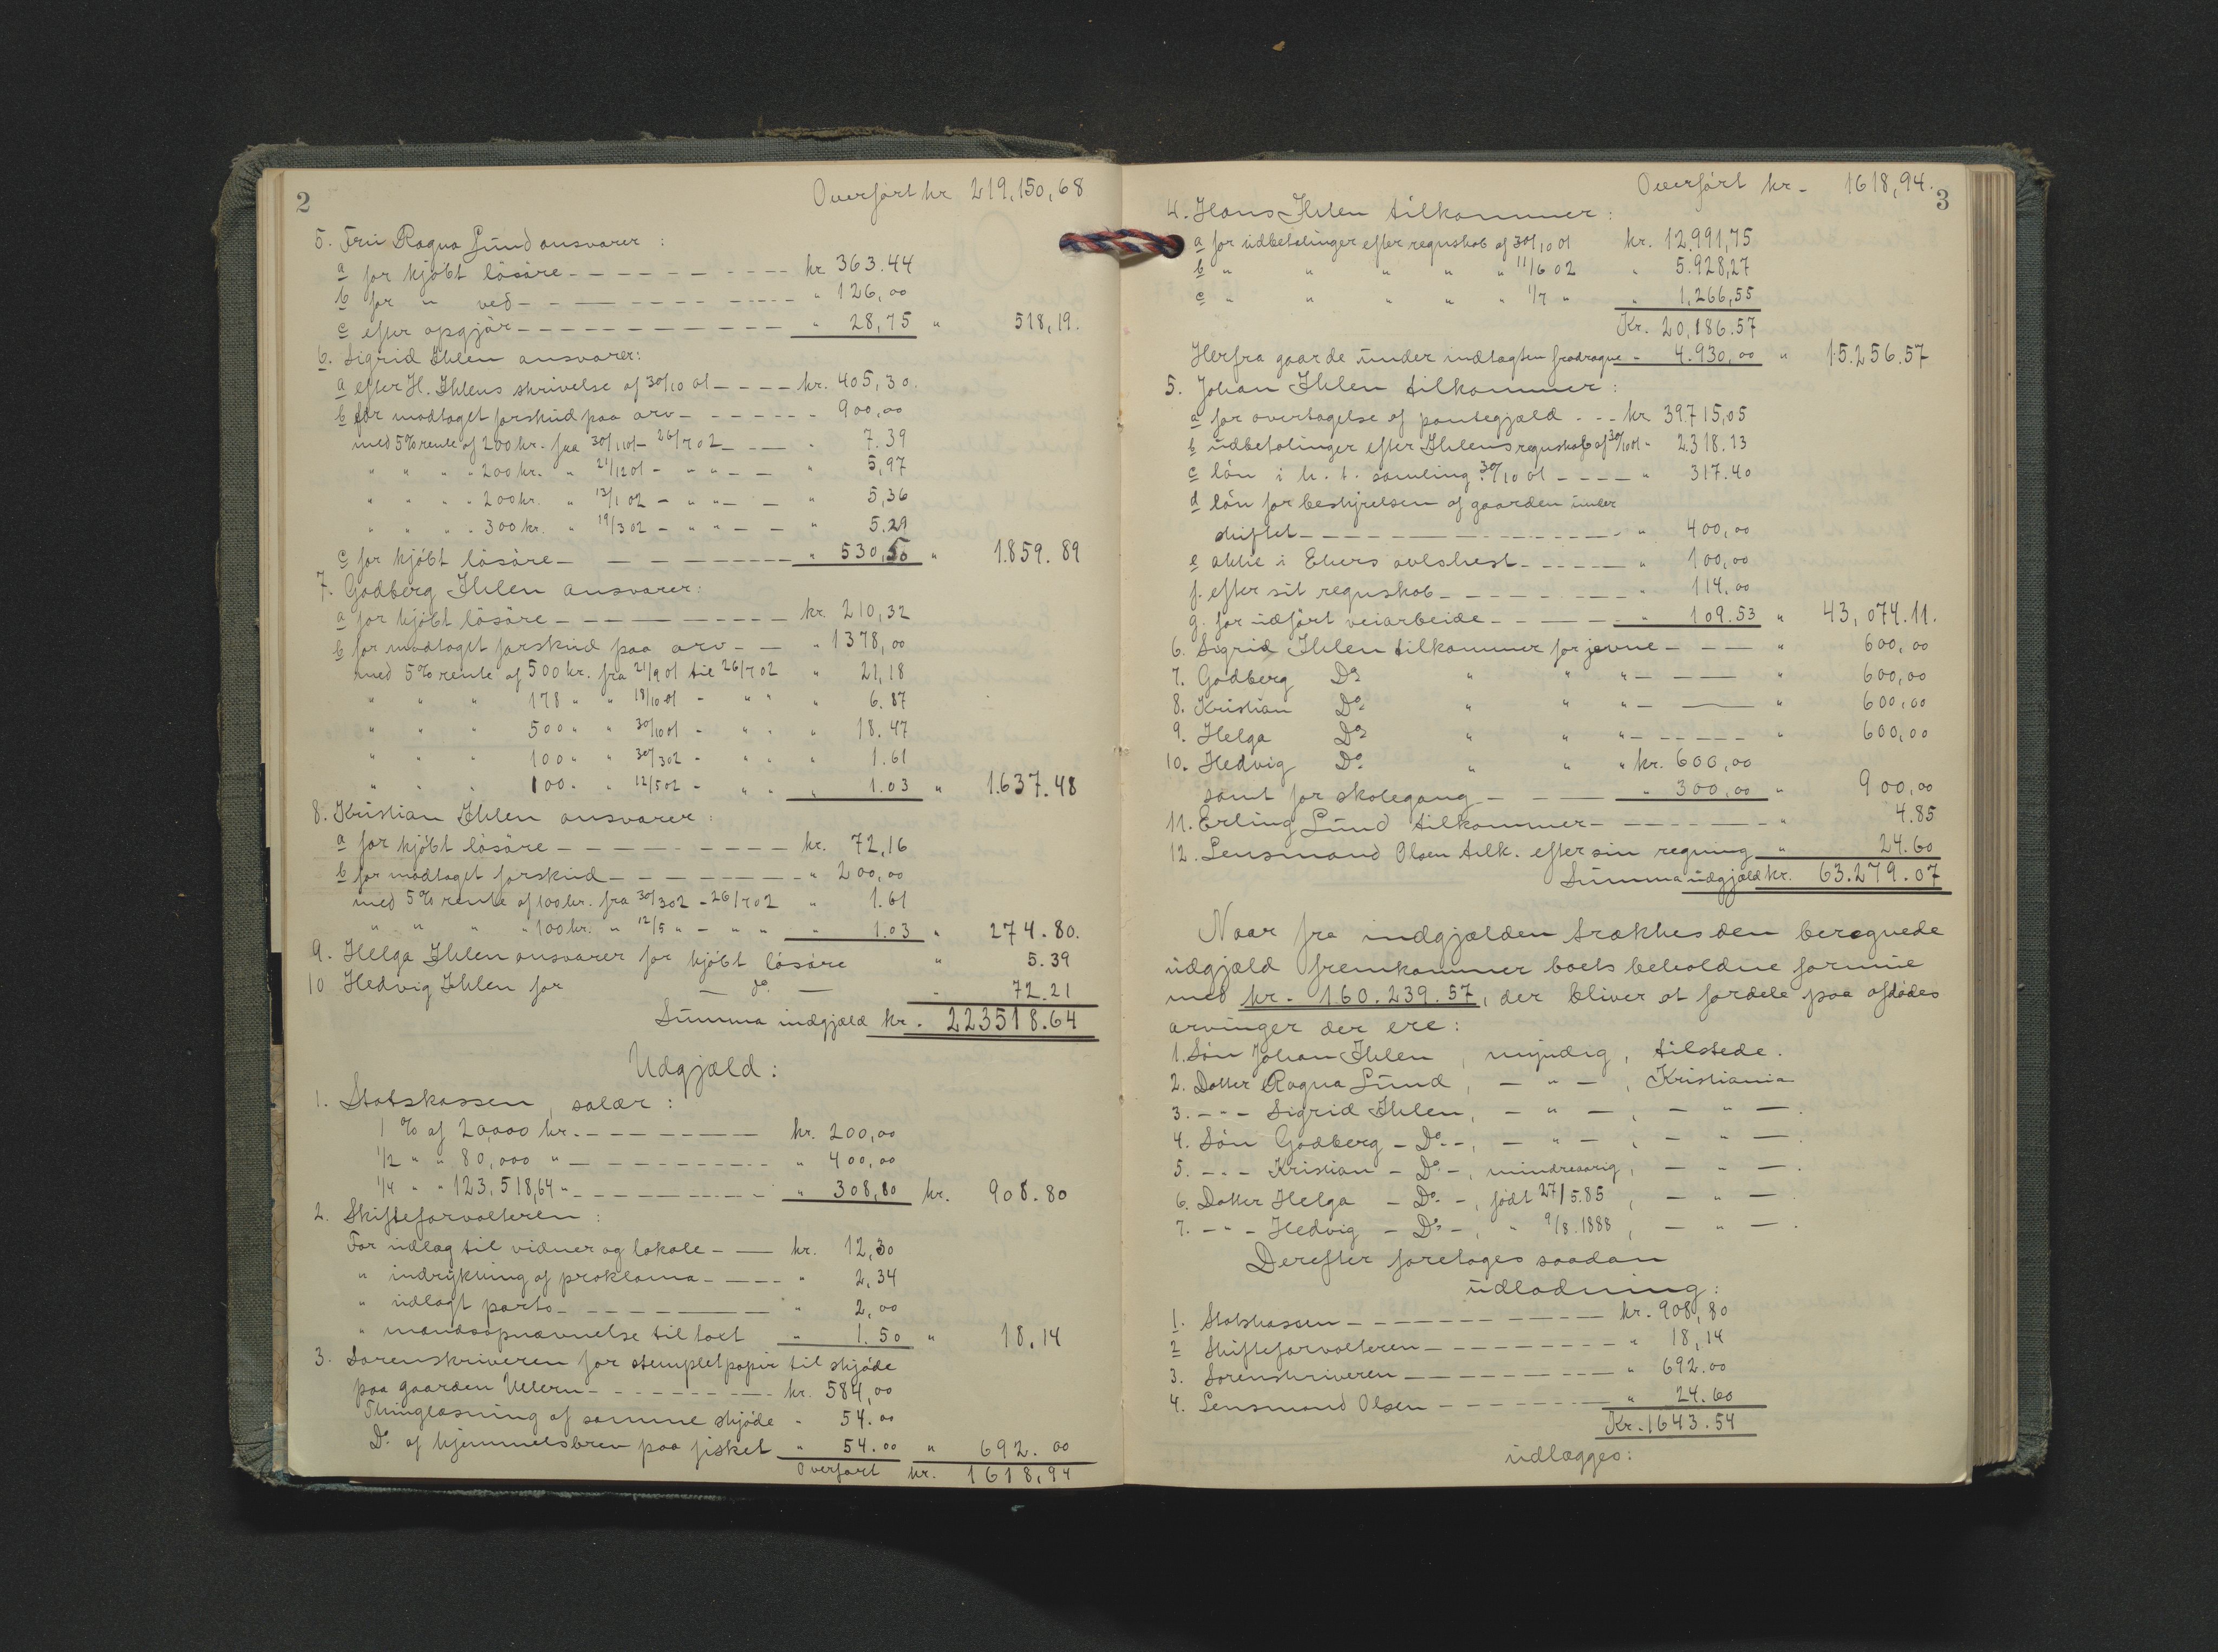 2
Overført kr 219,150,68
5. Fru Ragna Lund ansvarer :
a for kjøbt løsøre - - - - - - - - kr. 363.44
b for " ved - - - - - - - - " 126,00
c efter opgjør - - - - - - - - " 28,75 " 518,19.
6. Sigrid Ihlen ansvarer:
a efter H. Ihlens skrivelse af 30/10 01 - - - - kr. 405,30.
b for modtaget forskud paa arv - - - - - - " 900,00
med 5% rente af 200 kr. fra 30/1 01 - 26/7 02 - - - " 7.39
" " " " 200 kr. " 21/12 01 - " " - - " 5,97
" " " " 200 kr. " 13/1 02 - " " - - " 5,36
" " " " 300 kr. " 19/3 02 - " " - - " 5.29
c for kjøbt løsøre - - - - - - - - " 530,50 " 1.859.89
7. Godberg Ihlen ansvarer:
a for kjøbt løsøre - - - - - - - kr. 210,32
b for modtaget forskud paa arv - - " 1378,00
med 5% rente af 500 kr. fra 21/9 01 til 26/7 02 " 21,18
" " " 178 " " 18/10 01 - " " " 6.87
" " " 500 " " 30/10 01 - " " " 18.47
" " " 100 " " 30/3 02 - " " " 1.61
" " " 100 - " 12/5 02 - " " " 1.03 " 1.637.48
8. Kristian Ihlen ansvarer :
a for kjøbt løsøre - - - - - - - - kr. 72,16
b for modtaget forskud - - - - - - - " 200,00
med 5% rente af 100 kr. fra 30/3 02 - 26/7 02 " 1.61
" " " " 100 kr. " 12/5 " - " " " 1.03 " 274.80.
9. Helga Ihlen ansvarer for kjøbt løsøre " 5.39
10 Hedvig Ihlen for — do. — - 72.21
Summa indgjæld kr. 223518.64
Udgjæld :
1. Statskassen, salær :
1 % af 20,000 kr. - - - - - - - kr. 200,00
1/2 " " 80,000 " - - - - - - - " 400,00
1/4 " " 123.518,64 " - - - - - - " 308,80 kr. 908.80
2. Skifteforvalteren :
For udlæg til vidner og lokale - - kr. 12,30
" indrykning af proklama - - - - " 2,34
" udlagt porto - - - - - - - " 2,00
" mandsopnævnelse til taxt " 1.50 " 18,14
3. Sorenskriveren for stempletpapir til skjøde
paa gaarden Ullern - - - - - - - kr. 584,00
Thinglæsning af samme skjøde - 54.00
Do. af hjemmelsbrev paa fisket " 54.00 " 692.00
Overført kr. 1618,94
Overført kr - 1618,94.
3
4. Hans Ihlen tilkommer :
a for udbetalinger efter regnskab af 30/10 01 kr. 12.991,75
b " " " " " 11/6 02 " 5.928,27
c " " " " " 1/7 " " 1,266,55
Kr. 20,186.57
Herfra gaar de under indtægten fradragne - 4.930,00 " 15.256.57
5. Johan Ihlen tilkommer :
a for overtagelse af pantegjæld - - - kr. 39.715,05
b udbetalinger efter Ihlens regnskab af 30/10 01 - 2.318.13
c løn i h. t. samling 30/10 01 - - - - " 317.40
d løn for bestyrelsen af gaarden under
skiftet - - - - - - - - - - - - " 400,00
e aktie i Ekers avlshest - - - - - - " 100,00
f. efter sit regnskab - - - - - - - " 114.00
g. for udført veiarbeide - - - - - " 109.53 " 43,074.11.
6. Sigrid Ihlen tilkommer for jevne - - - " 600,00
7. Godberg Do " " " - - - " 600,00
8. Kristian Do. " " " - - " 600,00
9. Helga Do " " " - - - - - " 600,00
10. Hedvig Do. " " " kr. 600,00
samt for skolegang - - - " 300,00 " 900,00
11. Erling Lund tilkommer - - - - - - - " 4.85
12. Lensmand Olsen tilk. efter sin regning " 24.60
Summa udgjæld kr. 63.279.07
Naar fra indgjælden trækkes den beregnede
udgjæld fremkommer boets beholdne formue
med kr. 160.239.57, der bliver at fordele paa afdødes
arvinger der ere :
1. Søn Johan Ihlen, myndig, tilstede.
2. Datter Ragna Lund, - " -, Kristiania
3. - - - Sigrid Ihlen, - " -, - " -.
4. Søn Godberg - Do. -, - " -, - " -.
5. - - - Kristian - Do. -, mindreaarig, - " -.
6. Datter Helga - Do. -, født 27/5.85, - " -.
7. - " - Hedvig - Do -, " 9/8.1888, - " -.
Derefter foretages saadan
udlodning :
1. Statskassen - - - - - - - - kr. 908,80
2 Skifteforvalteren - - - - - - - " 18,14
3. Sorenskriveren - - - - - - - " 692.00
4. Lensmand Olsen - - - - - - - " 24.60
Kr. 1643.54
udlægges :